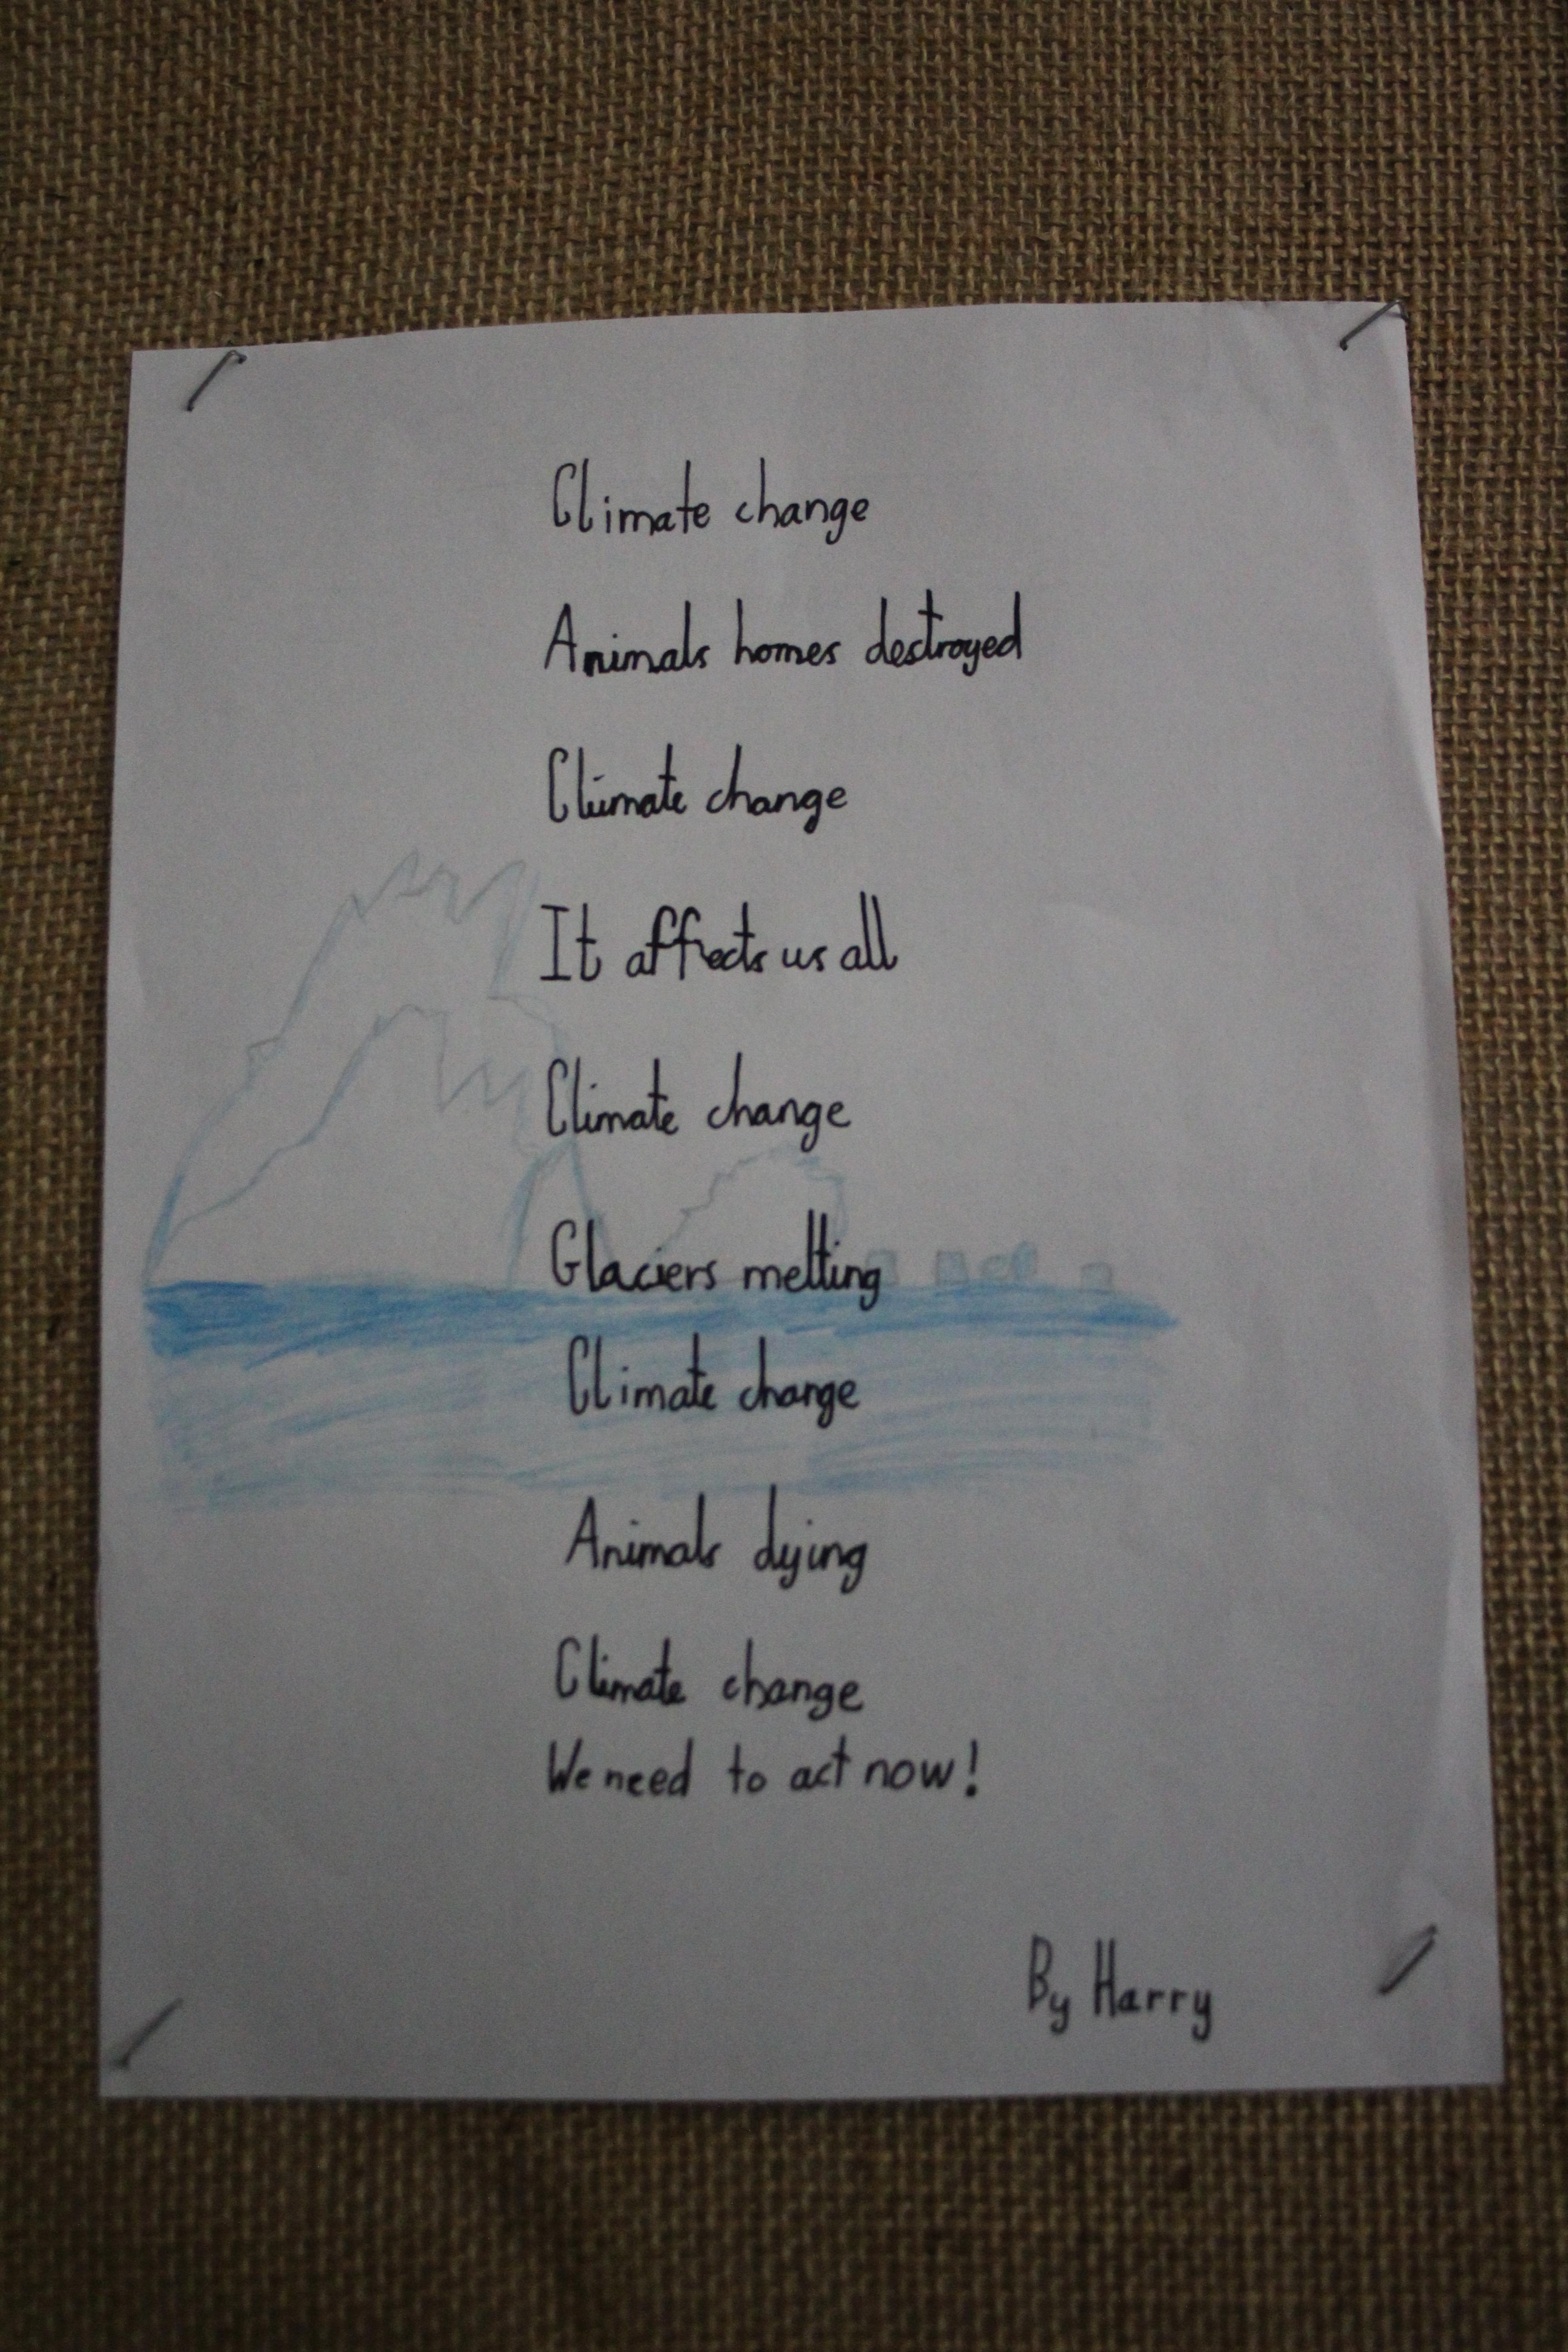 Climate change
Animals homes destroyed
Climate change
It affects us all
Climate change
Glaciers melting
Climate change
Animals dying
Climate change
We need to act now!
By Harry